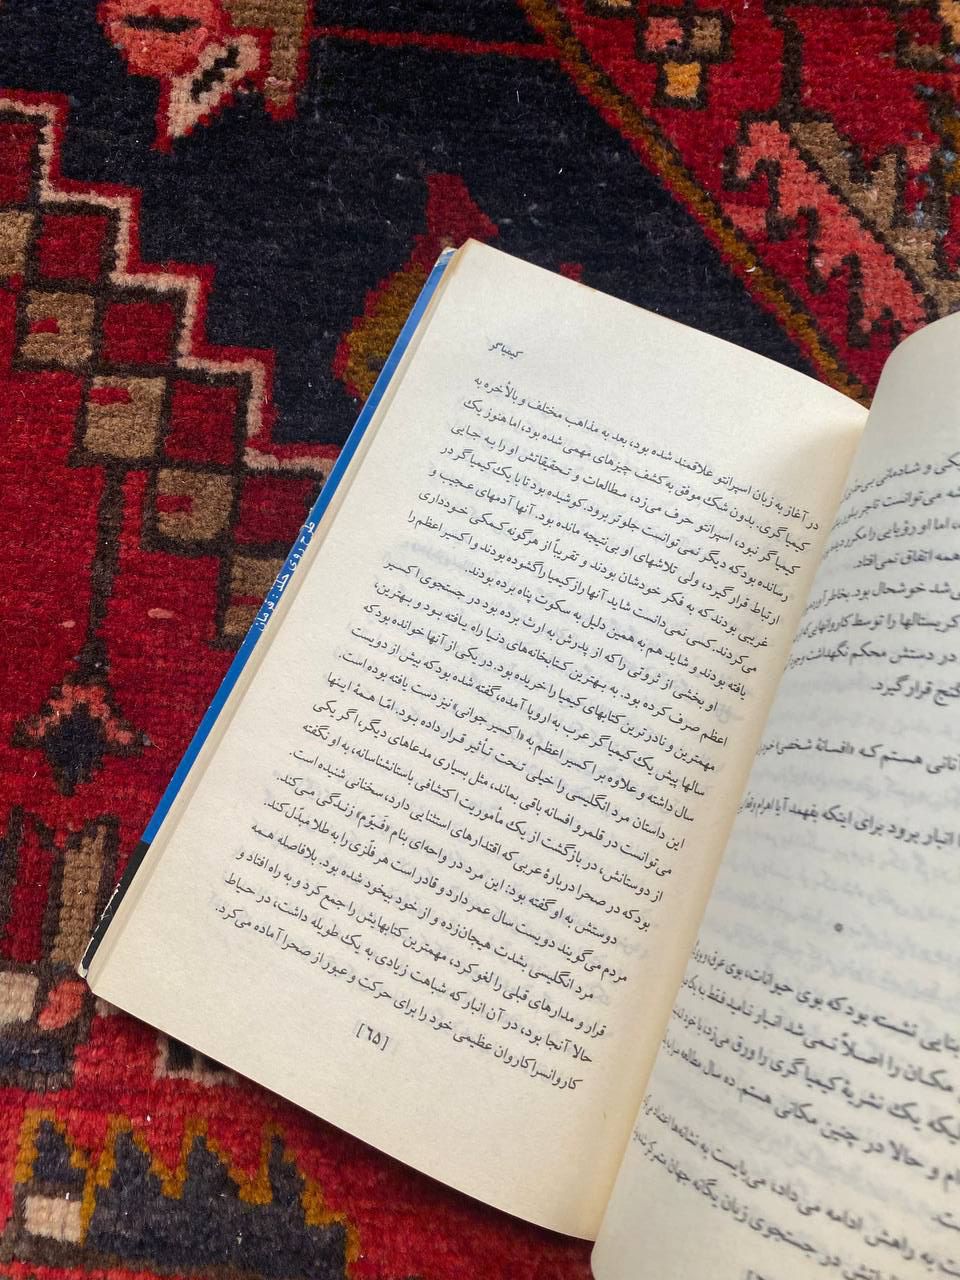 کیمیاگر
در آغاز به زبان اسپرانتو علاقمند شده بود، بعد به مذاهب مختلف و بالأخره به
کیمیاگری. بدون شک موفق به کشف چیزهای مهمی شده بود، اما هنوز یک
کیمیاگر نبود، اسپرانتو حرف می‌زد، مطالعات و تحقیقاتش او را به جایی
رسانده بود که دیگر نمی‌توانست جلوتر برود. کوشیده بود تا با یک کیمیاگر در
ارتباط قرار گیرد، ولی تلاشهای او بی‌نتیجه مانده بود. آنها آدمهای عجیب و
غریبی بودند که به فکر خودشان بودند و تقریباً از هرگونه کمکی خودداری
می‌کردند. کسی نمی‌دانست شاید آنها راز کیمیا را گشوده بودند و اکسیر اعظم را
یافته بودند و شاید هم به همین دلیل به سکوت پناه برده بودند.
او بخشی از ثروتی را که از پدرش به ارث برده بود در جستجوی اکسیر
اعظم صرف کرده بود. به بهترین کتابخانه‌های دنیا راه یافته بود و بهترین
مهمترین و نادرترین کتابهای کیمیا را خریده بود. در یکی از آنها خوانده بود که
سالها پیش یک کیمیاگر عرب به اروپا آمده، گفته شده بود که بیش از دویست
سال داشته و علاوه بر اکسیر اعظم به «اکسیر جوانی» نیز دست یافته بوده است.
این داستان مرد انگلیسی را خیلی تحت تأثیر قرار داده بود. امّا همهٔ اینها
می‌توانست در قلمرو افسانه باقی بماند، مثل بسیاری مدعاهای دیگر، اگر یکی
از دوستانش، در بازگشت از یک مأموریت اکتشافی باستانشناسانه، به او نگفته
بود که در صحرا دربارهٔ عربی که اقتدارهای استثنایی دارد، سخنانی شنیده است
دوستش به او گفته بود: این مرد در واحه‌ای بنام «فیّوم» زندگی می‌کند.
مردم می‌گویند دویست سال عمر دارد و قادر است هر فلّزی را به طلا مبدّل کند.
مرد انگلیسی بشدت هیجان‌زده و از خود بیخود شده بود. بلافاصله همه
قرار و مدارهای قبلی را لغو کرد، مهمترین کتابهایش را جمع کرد و به راه افتاد و
حالا آنجا بود، در آن انبار که شباهت زیادی به یک طویله داشت، در حیاط
کاروانسرا کاروان عظیمی خود را برای حرکت و عبور از صحرا آماده می‌کرد.
[۶۵]
طرح روی جلد : فرمان
یکی و شادمانی
می‌توانست تاجر
، اما او رؤیایی را مکرر
همه اتفاق نمی‌افتاد.
می‌شد خوشحال بود. بخاطر
کریستالها را توسط کاروانهایی که
در دستش محکم نگهداشت
گنج قرار گیرد.
آنانی هستم که «افسانهٔ شخصی»
انبار برود برای اینکه بفهمد آیا اهرام
*
بنایی نشسته بود که بوی حیوانات، بوی عرق و
مکان را اصلاً نمی‌شد انبار نامید فقط به یک
یک نشریهٔ کیمیاگری را ورق می‌زد، با خود
و حالا در چنین مکانی هستم، ده سال مطالعه
است.
به راهش ادامه می‌داد، می‌بایست به نشانه‌ها اعتماد
در جستجوی زبان یگانه جهان متمرکز